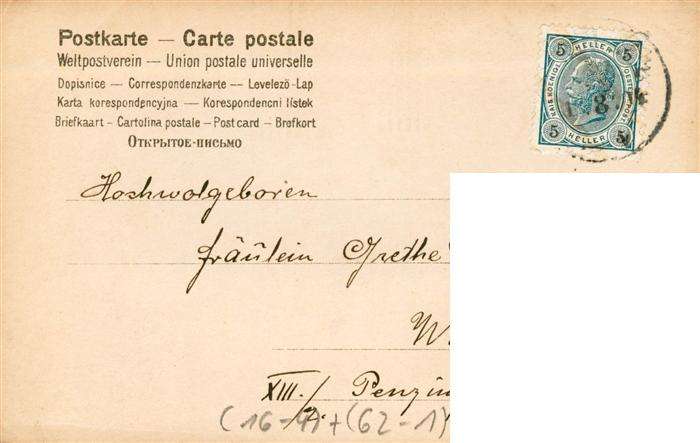 Postkarte — Carte postale
Weltpostverein — Union postale universelle
Dopisnice — Correspondenzkarte — Levelező-Lap
Karta korespondencyjna — Korespondenční lístek
Briefkaart - Cartolina postale - Post card - Brefkort
Открытое-письмо
5 HELLER 5
5 HELLER 5
Hoshwolgeboren
fräulein Grethe
W
XIII./2. Penzin
(16-9)+(62-1)